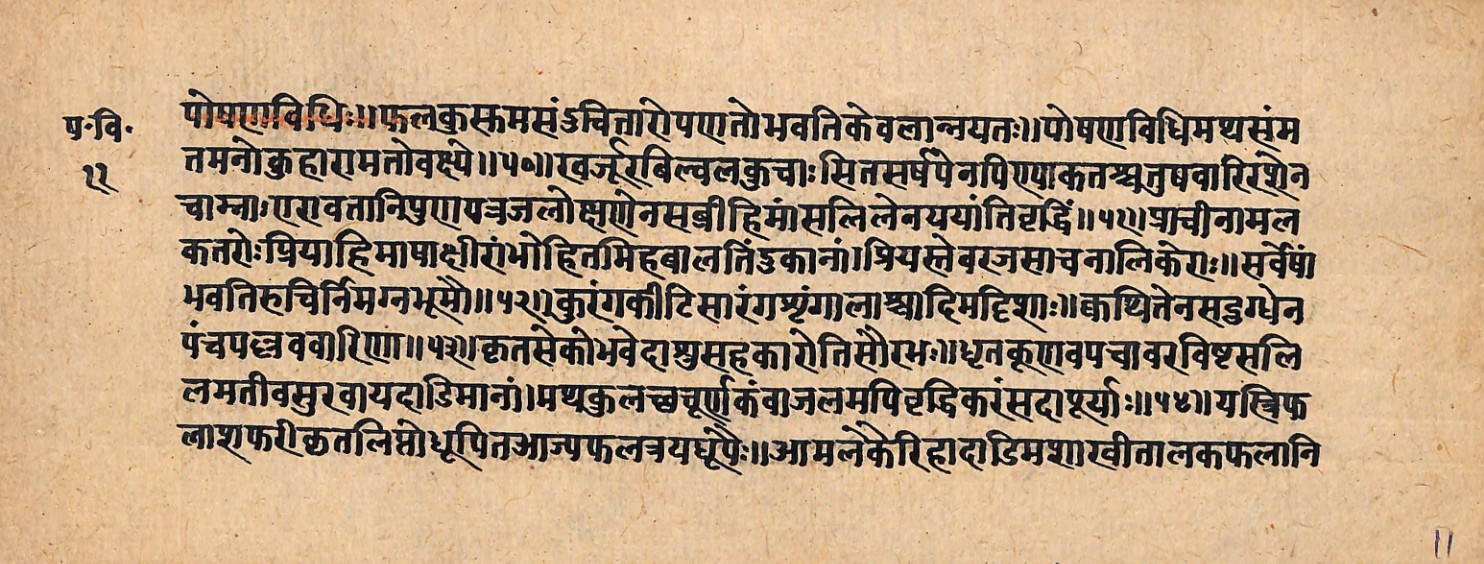 प॰वि॰
११
पोषणविधिः॥फलकुस्कमसंडचितारोपणतोभवतिकेवलान्नयतः॥पोषणविधिमथसंम
तमनोकुहारामतोवक्ष्ये॥५०॥खर्जूरबिल्वलकुचाःसितसर्षपेनपिण्याकतश्चतुषवारिरंशेन
चाम्नाःएरावतानिपुणपत्रजलोक्षणेनसव्रीहिमांसलिलेनययांतिवृद्धिं॥५१॥प्राचीनामल
कतरोःप्रियाहिमाषाक्षीरांभोहितमिहबालतिंडुकानां।प्रियस्तेवरजसाचनालिकेराः॥सर्वेषां
भवतिरुचिर्निमग्नभूमौ॥५२॥कुरंगकीटिसारंगशृंगालाश्चादिमद्दिशाः॥क्वथितेनसदुग्धेन
पंचपल्लववारिणा॥५३॥कृतसेकोभवेदाशुसहकारोतिसौरभः॥धृतकूणवपचावरविष्टसलि
लमतीवसुखायदाडिमानां।मथकुलच्छचूर्णकंवाजलमपिवृद्धिकरंसदाष्टर्याः॥५४॥यस्त्रिफ
लाशफरीकृतलिप्तोधूपितआज्यफलत्रयधूपैः॥आमलकैरिहादाडिमशाखीतालकफलानि
11